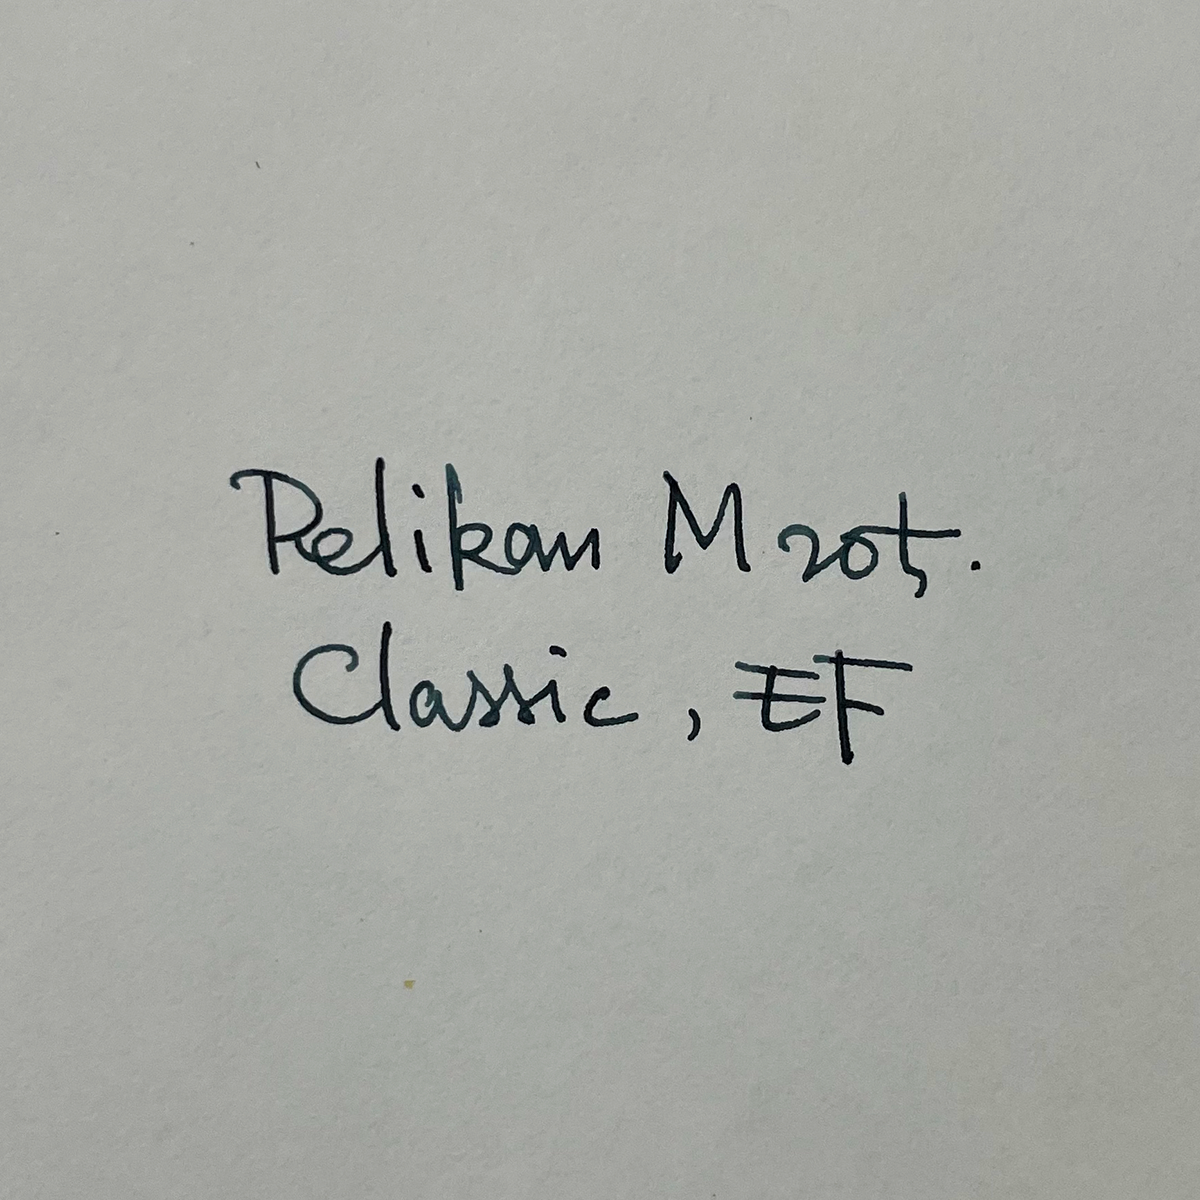 Pelikan M205.
Classic, EF